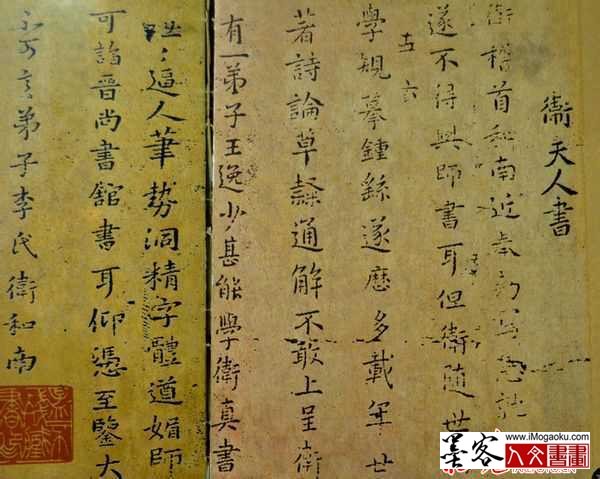 衛夫人書
衛稽首和南近奉勅寫急就
遂不得與師書耳但衛隨世
五六
學規摹鍾繇遂歷多載年廿
著詩論草隸通解不敢上呈衛
有一弟子王逸少甚能學衛真書
咄逼人筆勢洞精字體遒媚師
可詣晉尚書館書耳仰憑至鑒大
不可言弟子李氏衛和南
墨客
www.iMogaoku.com
人文書畫